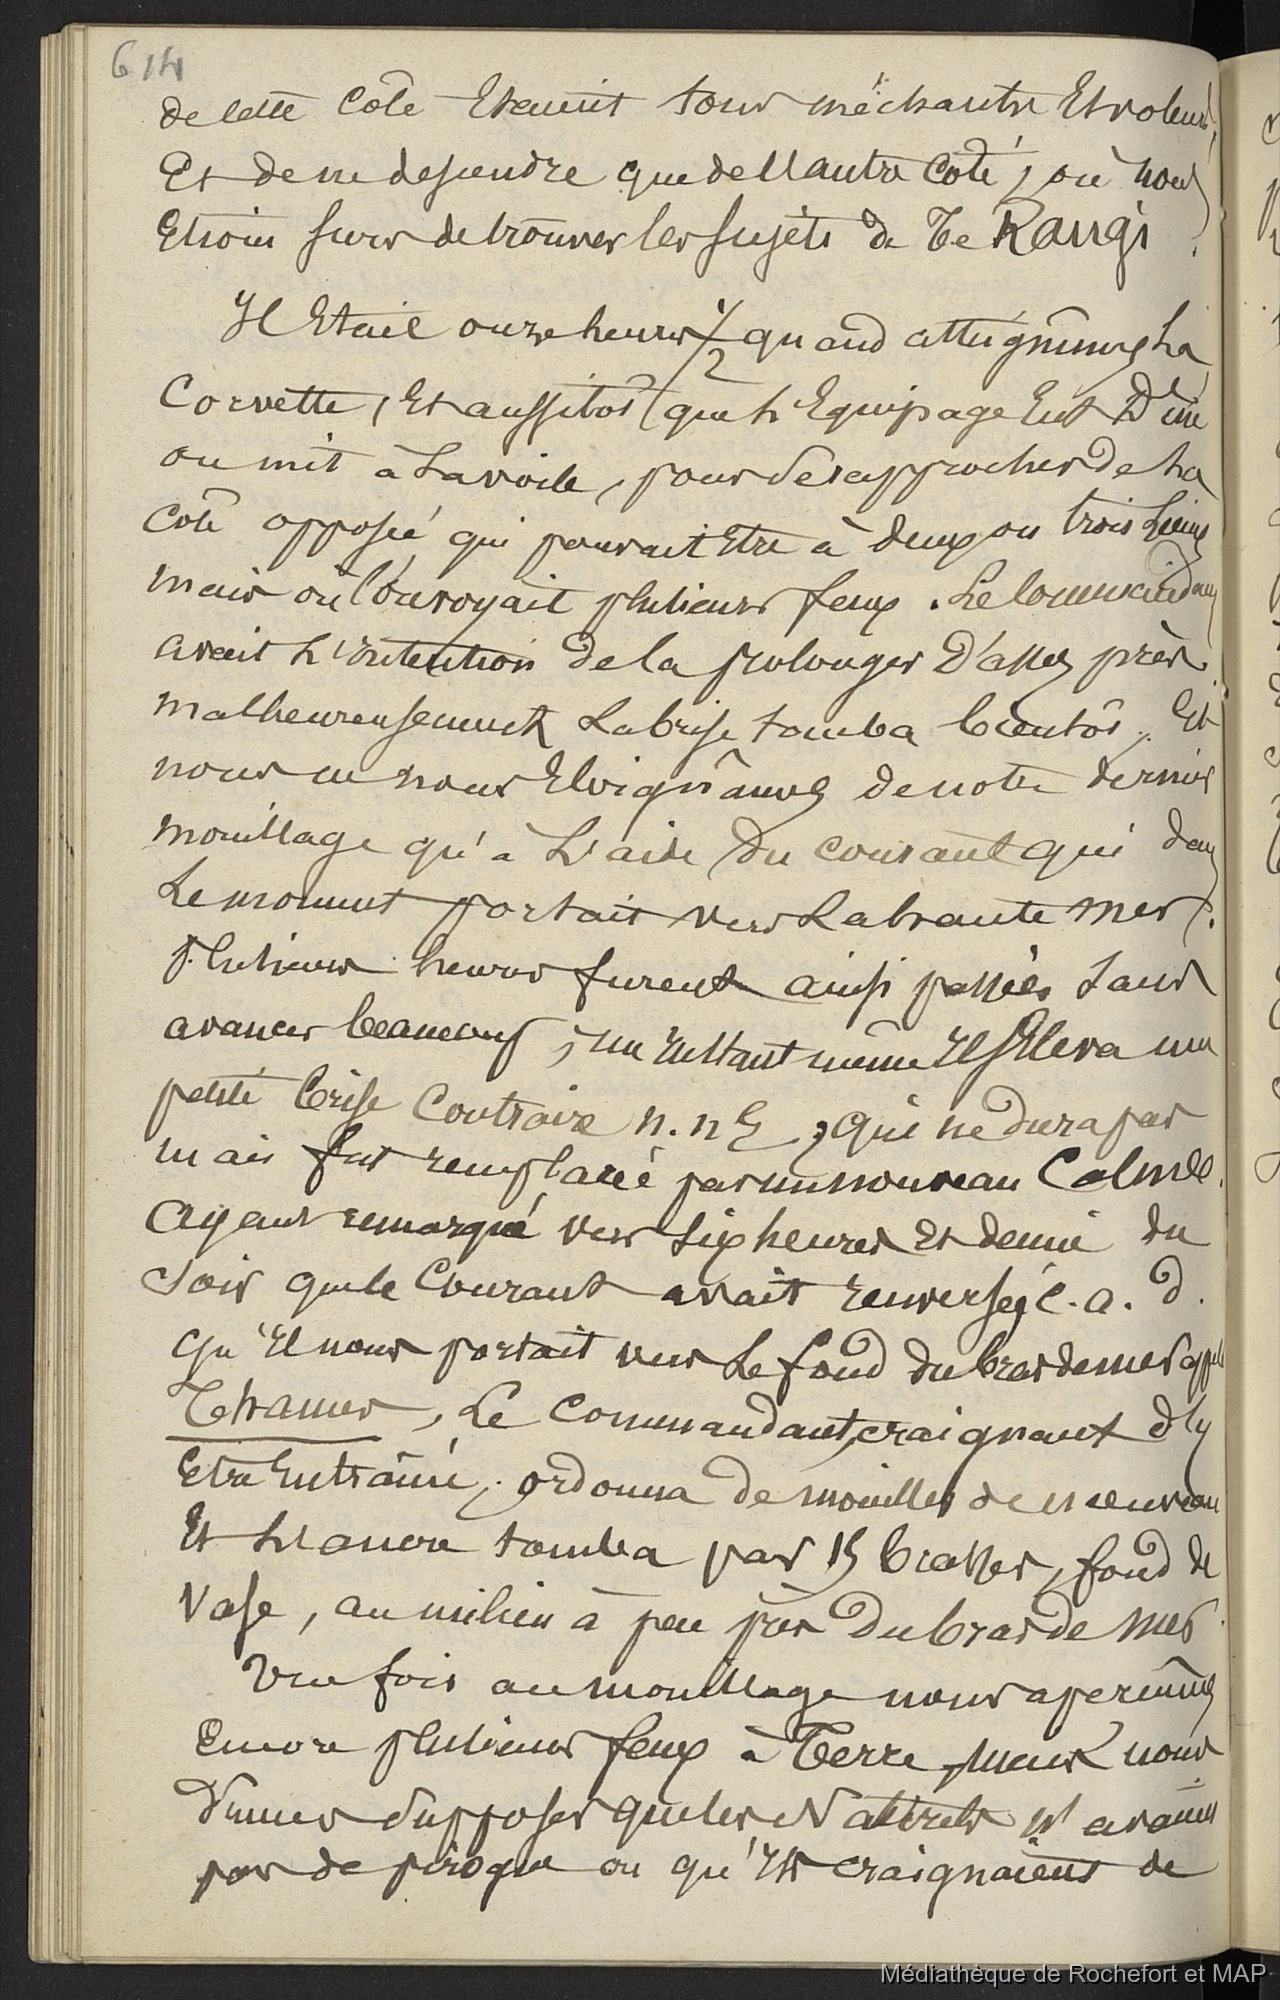 614
de cette côte Etaient tous méchants Et voleurs,
Et de ne descendre que de l'autre coté, où nous
Etions surs de trouver les sujets de Te Rangi.
Il Etait onze heures 1/2 quand atteignîmes La
Corvette, Et aussitôt que L'Equipage Eut Diné
on mit à La voile, pour se rapprocher de La
côte opposée qui pouvait Etre à deux ou trois Lieues
mais où l'on voyait plusieurs feux. Le Commandant
avait L'intention de la prolonger D'assez près.
malheureusement La brise tomba bientôt, Et
nous ne nous Eloignâmes de notre dernier
mouillage qu'à L'aide du courant qui dans
Le moment portait vers La haute mer.
Plusieurs heures furent ainsi passées sans
avancer beaucoup, un Instant même Il s'Eleva une
petite brise Contraire n.n.E, qui ne dura pas
mais fut remplacée par un nouveau Calme.
Ayant remarqué vers six heures Et demie du
soir que le Courant avait renversé, c.a.d.
qu'Il nous portait vers Le fond du bras de mer appelé
Tehamer, Le Commandant, craignant d'y
Etre Entrainé, ordonna de mouiller de nouveau
Et L'ancre tomba par 15 brasses, fond de
Vase, au milieu à peu près du bras de mer.
Une fois au mouillage nous aperçûmes
Encore plusieurs feux à Terre, mais nous
dûmes supposer que les Naturels n'avaient
pas de pirogue ou qu'Ils craignaient de
Médiathèque de Rochefort et MAP